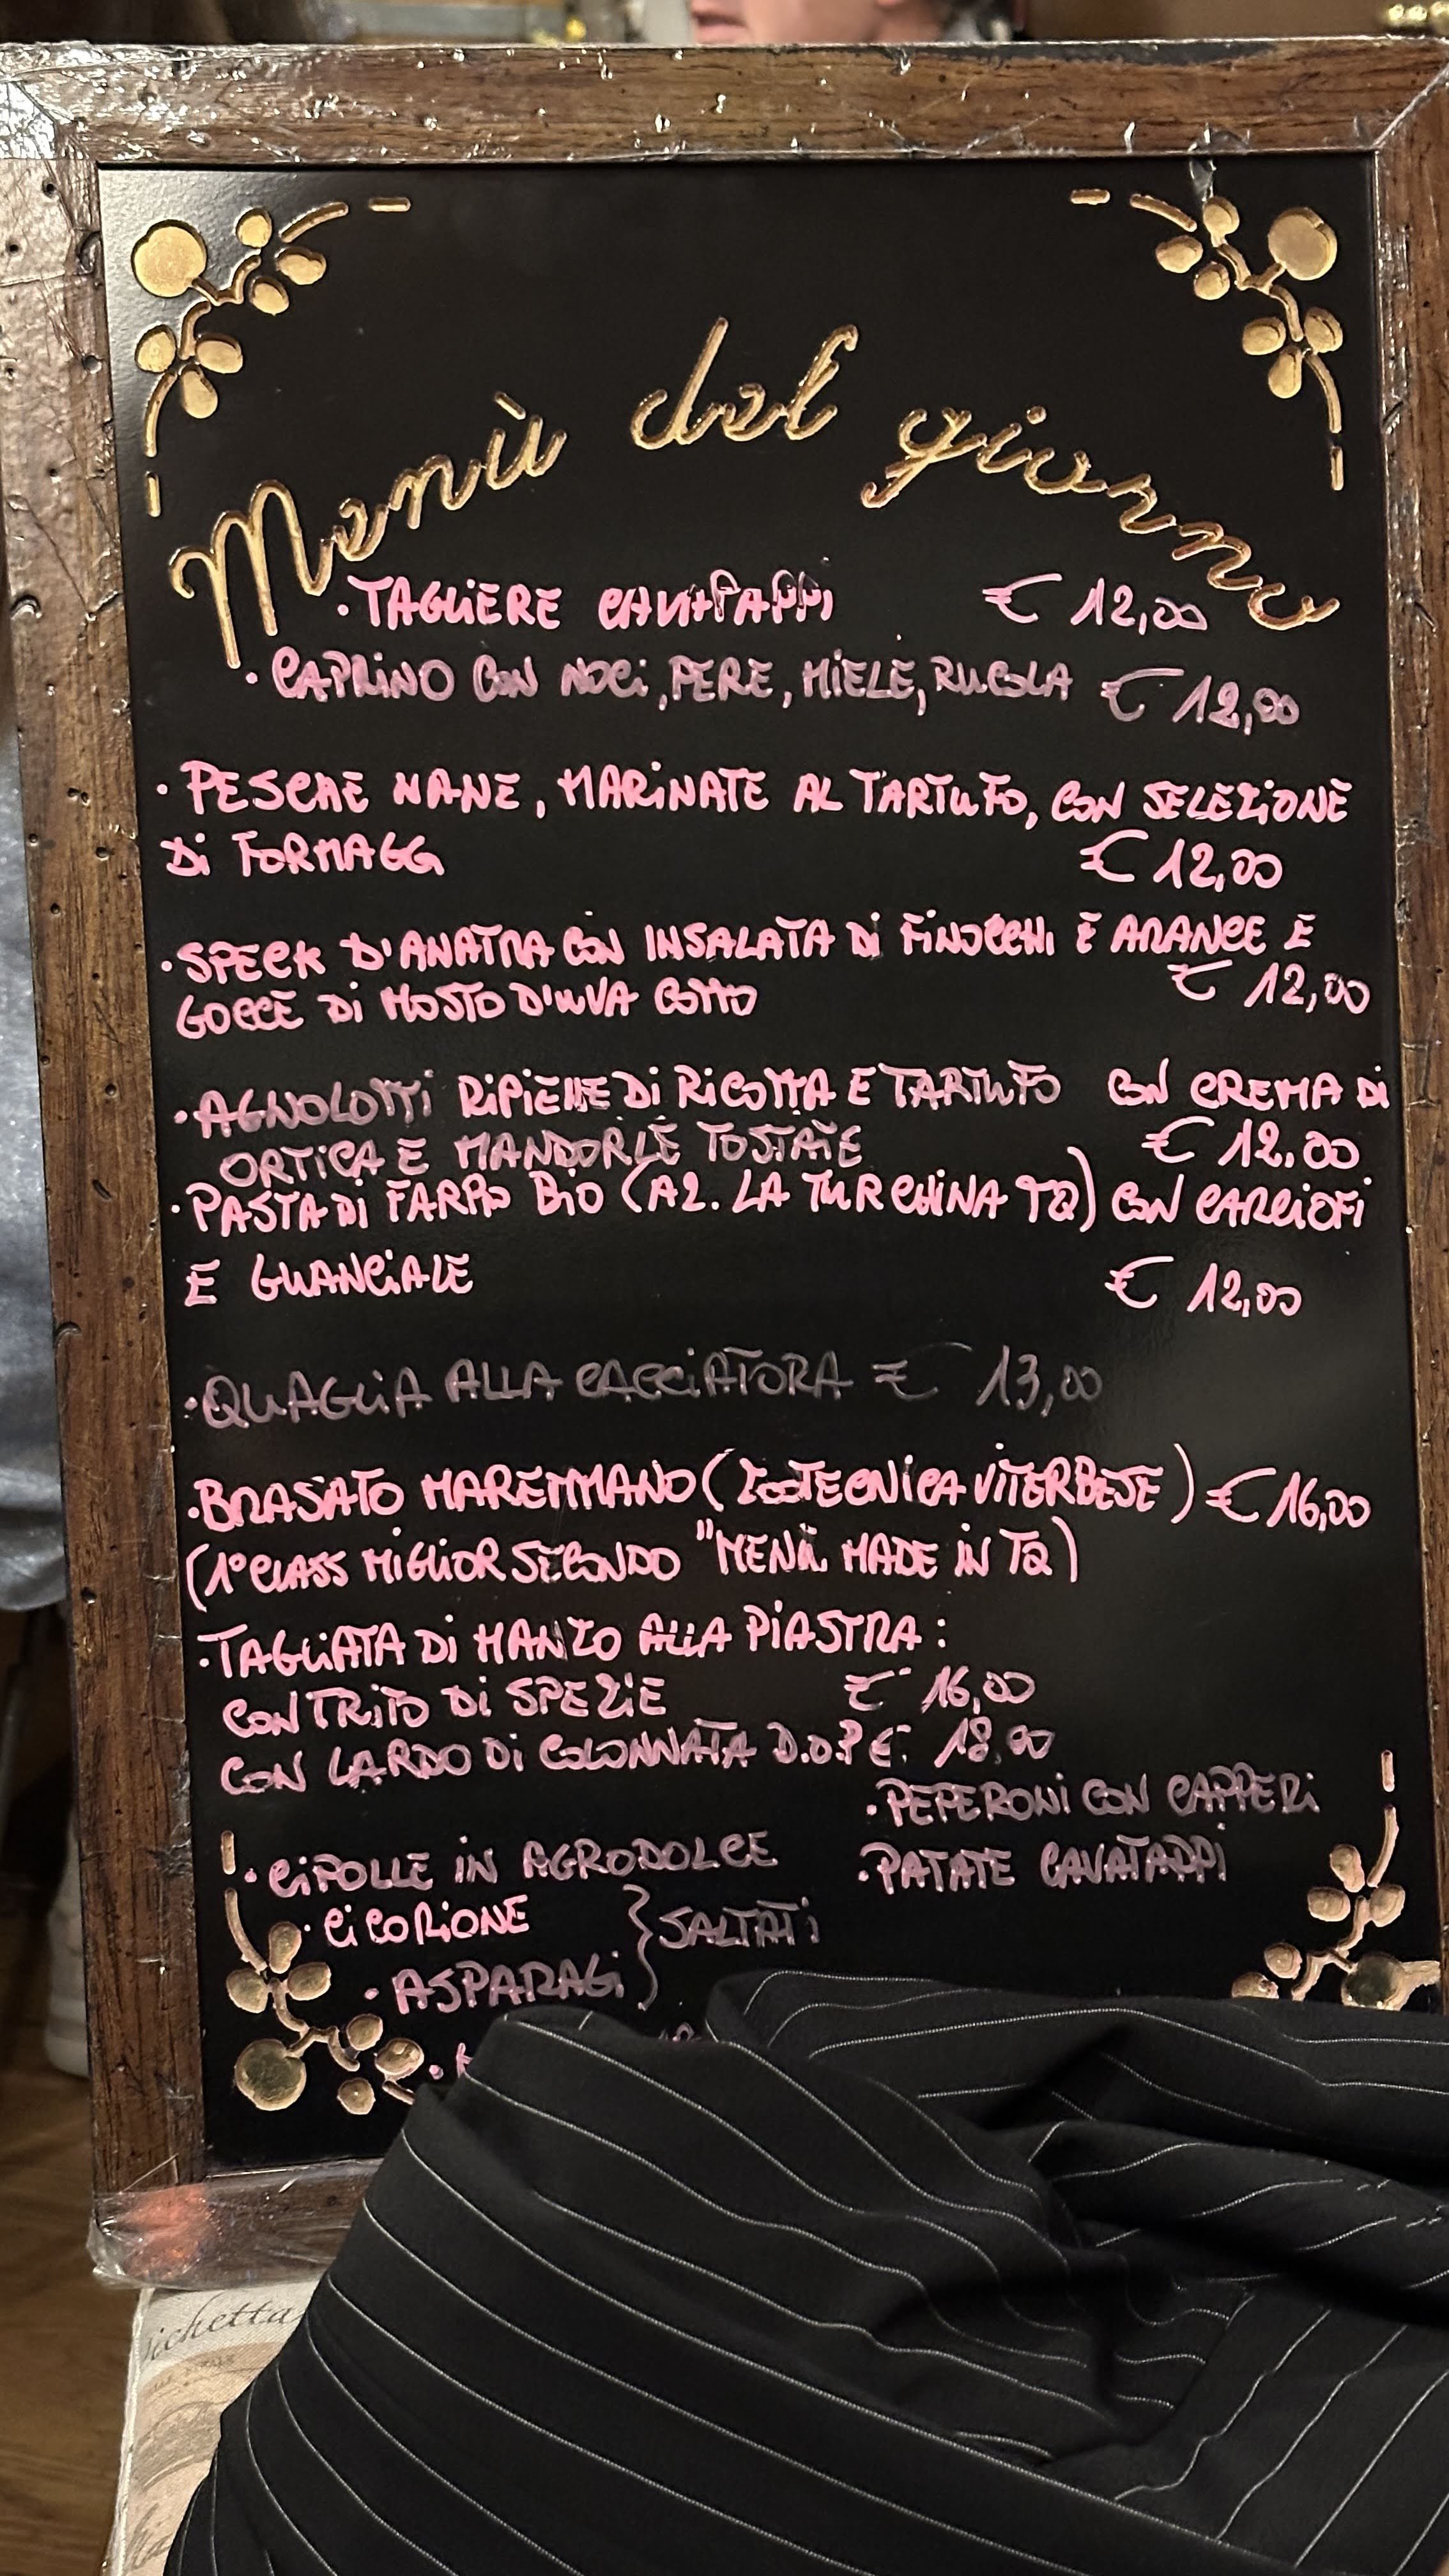 Menù del giorno
· TAGLIERE CAVATAPPI € 12,00
· CAPRINO CON NOCI, PERE, MIELE, RUCOLA € 12,00
· PESCHE NANE, MARINATE AL TARTUFO, CON SELEZIONE
DI FORMAGG € 12,00
· SPECK D'ANATRA CON INSALATA DI FINOCCHI E ARANCE E
GOCCE DI MOSTO D'UVA COTTO € 12,00
· AGNOLOTTI RIPIENE DI RICOTTA E TARTUFO CON CREMA DI
ORTICA E MANDORLE TOSTATE € 12.00
· PASTA DI FARRO BIO (AZ. LA TURCHINA TQ) CON CARCIOFI
E GUANCIALE € 12,00
· QUAGLIA ALLA CACCIATORA € 13,00
· BRASATO MAREMMANO (ZOOTECNICA VITERBESE) € 16,00
(1° CLASS MIGLIOR SECONDO "MENÙ MADE IN TQ)
· TAGLIATA DI MANZO ALLA PIASTRA:
CON TRITO DI SPEZIE € 16,00
CON LARDO DI COLONNATA D.O.P € 18,00
· PEPERONI CON CAPPERI
· CIPOLLE IN AGRODOLCE · PATATE CAVATAPPI
· CICORIONE } SALTATI
· ASPARAGI